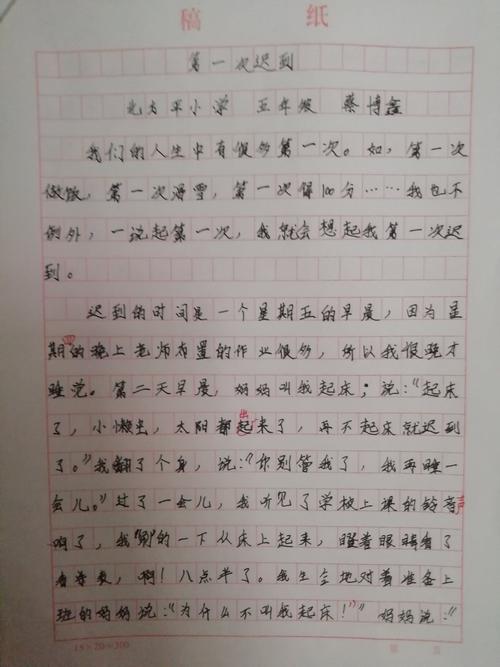 稿 纸
第一次迟到
北方平小学 五年级 蔡博鑫
我们的人生中有很多第一次。如,第一次
做饭,第一次滑雪,第一次得100分……我也不
例外,一说起第一次,我就会想起我第一次迟
到。
迟到的时间是一个星期五的早晨,因为星
期四的晚上老师布置的作业很多,所以我很晚才
睡觉。第二天早晨,妈妈叫我起床;说:“起床
了,小懒虫,太阳都出来了,再不起床就迟到
了。”我翻了个身,说:“你别管我了,我再睡一
会儿。”过了一会儿,我听见了学校上课的铃声
响了,我“刷”的一下从床上起来,
眼睛看了
看 啊!八点半了。我生气地对着准备上
班的妈妈说:“为什么不叫我起床!”妈妈说:“
15×20=300
第 页